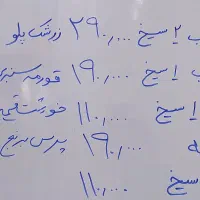 ب ۲ سیخ ۲۹۰,۰۰۰ زرشک پلو
ب ۱ سیخ ۱۹۰,۰۰۰ قورمه سبزی
۱ سیخ ۱۱۰,۰۰۰ خورشت قیمه
ه ۱۹۰,۰۰۰ پرس برنج
سیخ ۱۱۰,۰۰۰